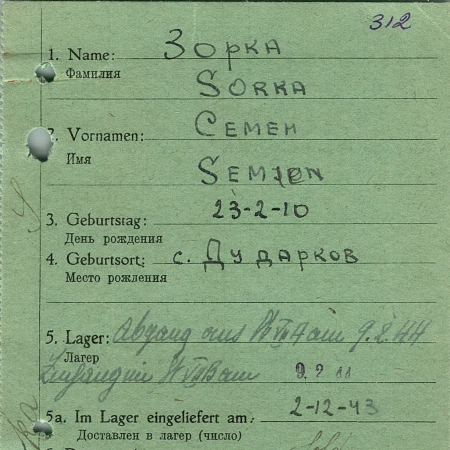 312
1. Name: Зорка
Фамилия
SORKA
2. Vornamen: Семен
Имя
SEMJEN
3. Geburtstag: 23-2-10
День рождения
4. Geburtsort: с. Дударков
Место рождения
5. Lager: Abgang aus am 9.2.44
Лагер
am 9.2.44
5a. Im Lager eingeliefert am: 2-12-43
Доставлен в лагер (число)